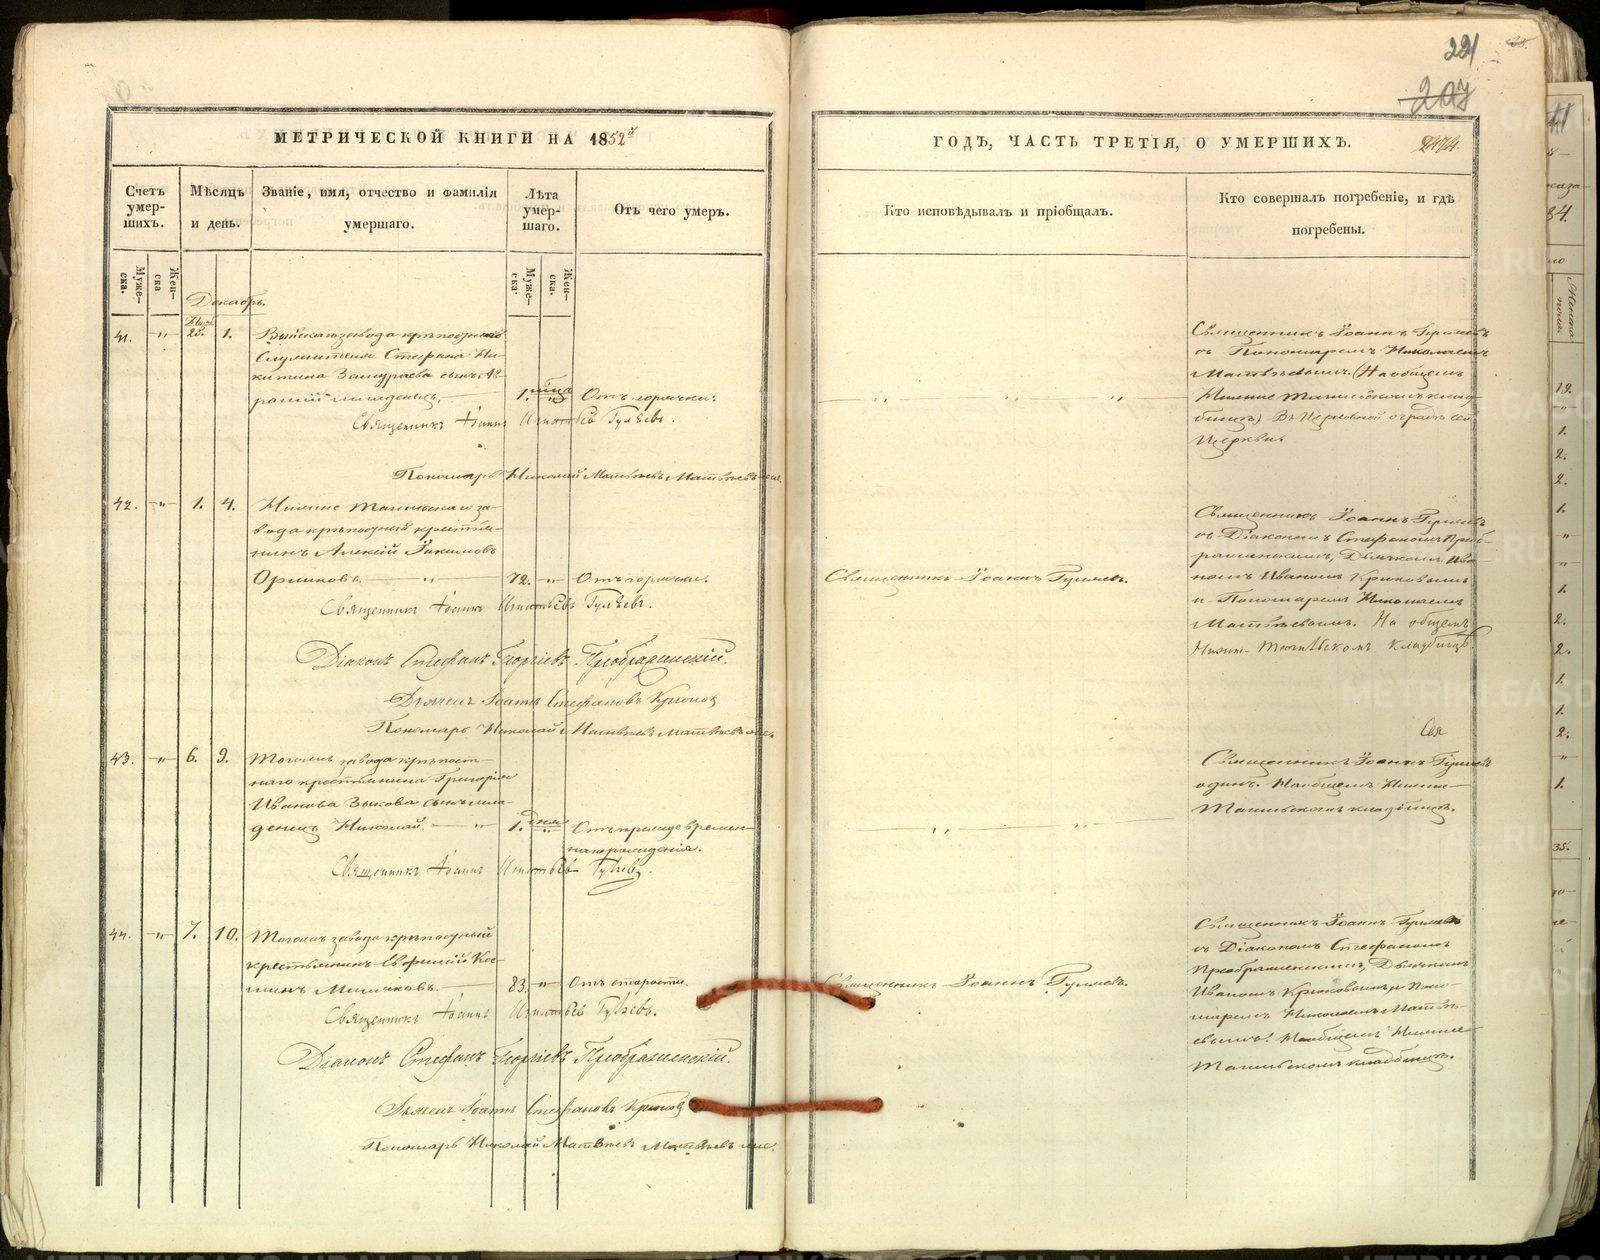 221
207
МЕТРИЧЕСКОЙ КНИГИ НА 1852й
ГОДЪ, ЧАСТЬ ТРЕТІЯ, О УМЕРШИХЪ.
Счетъ умер-шихъ.
Мѣсяцъ и день.
Званіе, имя, отчество и фамилія
умершаго.
Лѣта умер-шаго.
Отъ чего умеръ.
Кто исповѣдывалъ и пріобщалъ.
Кто совершалъ погребеніе, и гдѣ
погребены.
Муже-ска.
Жен-ска
Муже-ска.
Жен-ска.
Декабрь.
41. " 28. 1. Выйскаго завода крѣпостнаго
Служителя Стефана Ни-
китина сынъ
младенецъ. 1. Отъ горячки.
Священникъ Іоаннъ Игнатьевъ Гуляевъ.
Пономарь Николай Матвѣевъ Матвѣевъ
Священникъ Іоаннъ Гуляевъ
съ Пономаремъ Николаемъ
Матвѣевымъ. (На общемъ
Нижне Тагильскомъ клад-
бищѣ) Въ Церковной оградѣ сей
Церкви
42. " 1. 4. Нижне Тагильскаго за-
вода крѣпостный крестья-
нинъ Алексій Іакимовъ
" 72. " Отъ горячки.
Священникъ Іоаннъ Гуляевъ.
Священникъ Іоаннъ Игнатьевъ Гуляевъ.
Діаконъ Стефанъ Георгіевъ Преображенскій.
Дьячекъ Іоаннъ Стефановъ Крюковъ
Пономарь Николай Матвѣевъ Матвѣевъ
Священникъ Іоаннъ Гуляевъ
съ Діакономъ Стефаномъ Преоб-
раженскимъ, Дьячкомъ Ива-
номъ Ивановымъ Крюковымъ
и Пономаремъ Николаемъ
Матвѣевымъ. На общемъ
Нижне-Тагильскомъ Кладбищѣ.
Свя
43. " 6. 9. Тогожъ завода крѣпост-
наго крестьянина Григорія
Иванова Зыкова сынъ мла-
денецъ Николай. " 1. дня " Отъ преждевремен-
наго рожденія.
Священникъ Іоаннъ Игнатьевъ Гуляевъ.
Священникъ Іоаннъ Гуляевъ
одинъ. На общемъ Нижне-
Тагильскомъ кладбищѣ.
44. " 7. 10. Тогожъ завода крѣпостный
крестьянинъ Евфимій Кос-
минъ 83. " Отъ старости.
Священникъ Іоаннъ Гуляевъ.
Священникъ Іоаннъ Игнатьевъ Гуляевъ.
Діаконъ Стефанъ Георгіевъ Преображенскій.
Дьячекъ Іоаннъ Стефановъ Крюковъ
Пономарь Николай Матвѣевъ Матвѣевъ
Священникъ Іоаннъ Гуляевъ
съ Діакономъ Стефаномъ
Преображенскимъ, Дьячкомъ
Иваномъ Крюковымъ и Поно-
маремъ Николаемъ Матвѣ-
евымъ. На общемъ Нижне
Тагильскомъ кладбищѣ.
METRIKI.GASO-URAL.RU